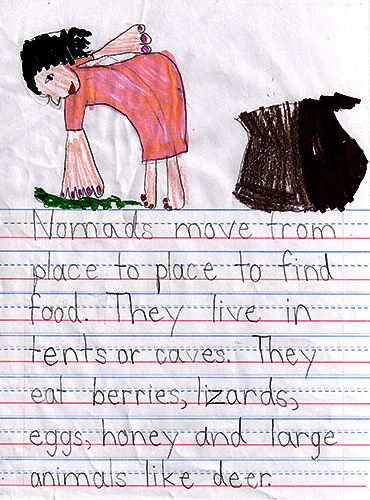 Nomads move from
place to place to find
food. They live in
tents or caves. They
eat berries, lizards,
eggs, honey and large
animals like deer.